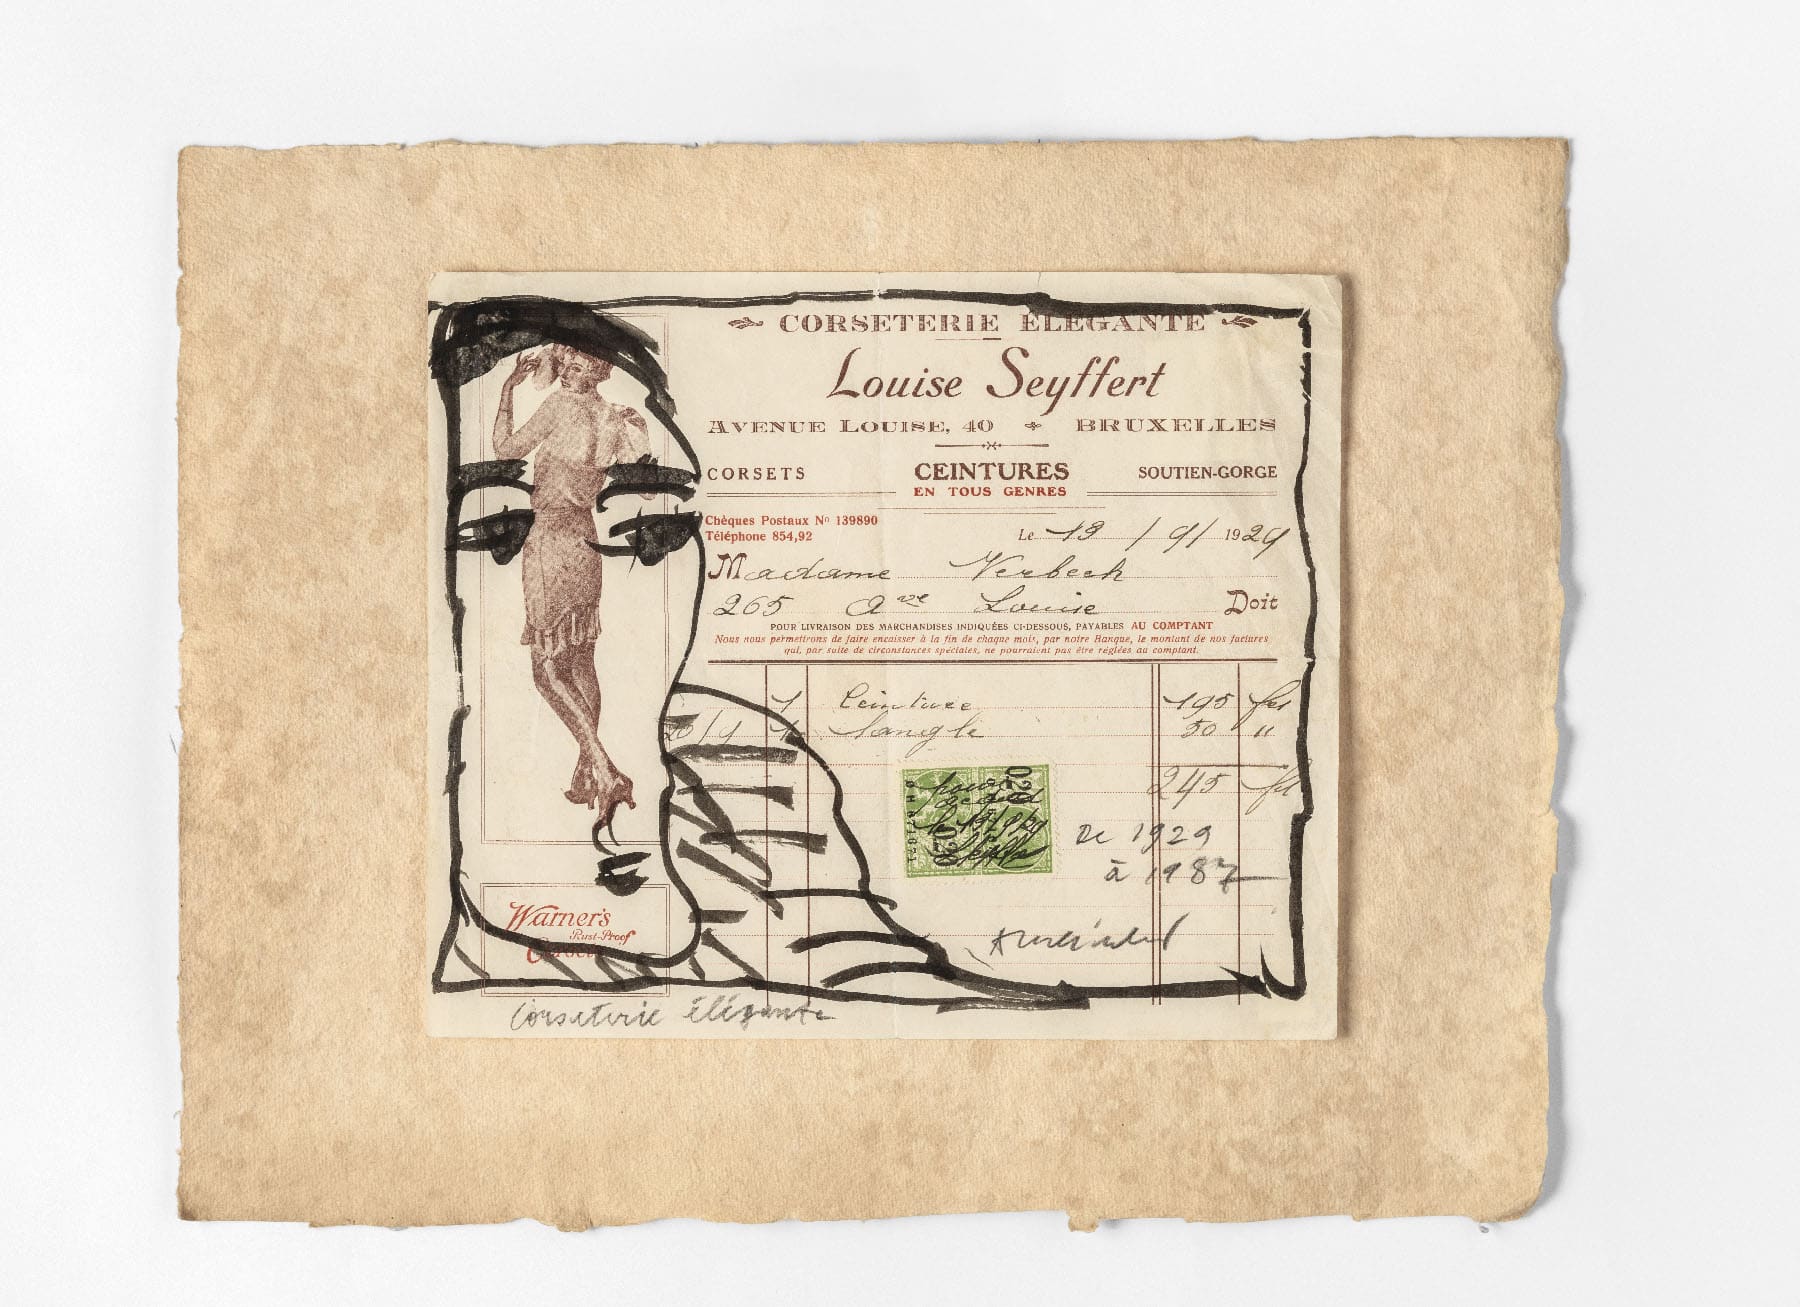 CORSETERIE ÉLÉGANTE
Louise Seyffert
AVENUE LOUISE, 40 BRUXELLES
CORSETS CEINTURES SOUTIEN-GORGE
EN TOUS GENRES
Chèques Postaux No 139890
Téléphone 854,92
Le 13 / 9 / 1929
Madame Verbeck
265 Ave Louise Doit
POUR LIVRAISON DES MARCHANDISES INDIQUÉES CI-DESSOUS, PAYABLES AU COMPTANT
Nous nous permettrons de faire encaisser à la fin de chaque mois, par notre Banque, le montant de nos factures
qui, par suite de circonstances spéciales, ne pourraient pas être réglées au comptant.
1 Ceinture 195 frs
1 Sangle 50 "
245 fr
020
pour
De 1929
à 1987
Alechinsky
Warner's
Rust-Proof
Corsets
Corseterie élégante